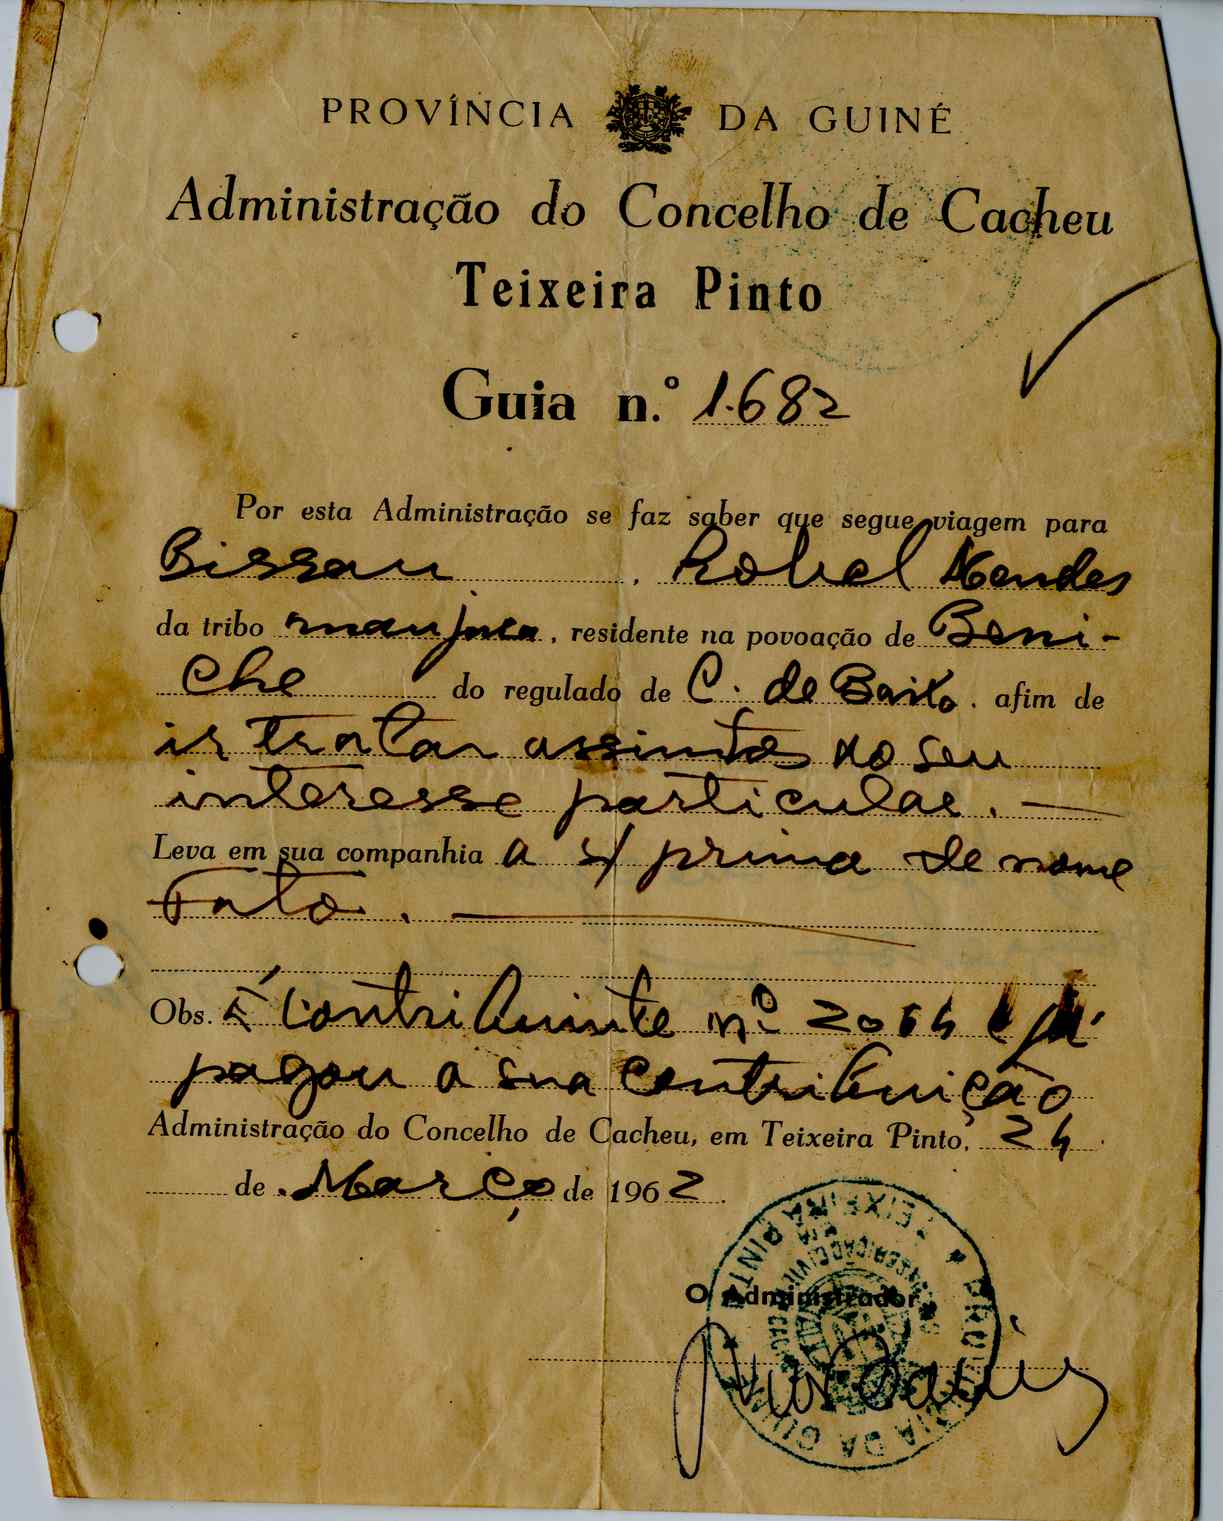 PROVÍNCIA DA GUINÉ
Administração do Concelho de Cacheu
Teixeira Pinto
Guia n.º 1.682
Por esta Administração se faz saber que segue viagem para
Bissau, Mendes
da tribo manjaca, residente na povoação de Beni-
che do regulado de C. de Baixo. afim de
ir tratar assuntos do seu
interesse particular. —
Leva em sua companhia a s/ prima de nome
—
Obs. É contribuinte nº 2064 e já
pagou a sua contribuição
Administração do Concelho de Cacheu, em Teixeira Pinto, 24
de Março de 1962.
O Administrador,
TEIXEIRA PINTO PROVÍNCIA DA GUINÉ